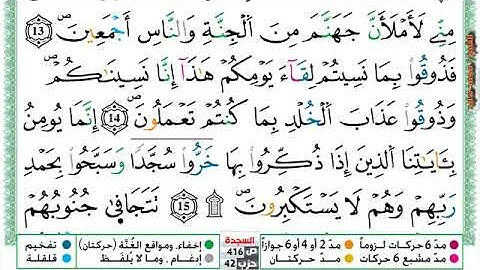 مِنِّے لَأَمْلَأَنَّ جَهَنَّمَ مِنَ اَ۬لْجِنَّةِ وَالنَّاسِ أَجْمَعِينَۖ 13
فَذُوقُواْ بِمَا نَسِيتُمْ لِقَآءَ يَوْمِكُمْ هَٰذَآ إِنَّا نَسِينَٰكُمْۖ
وَذُوقُواْ عَذَابَ اَ۬لْخُلْدِ بِمَا كُنتُمْ تَعْمَلُونَۖ 14 إِنَّمَا يُومِنُ
بِـَٔايَٰتِنَا اَ۬لذِينَ إِذَا ذُكِّرُواْ بِهَا خَرُّواْ سُجَّداٗ وَسَبَّحُواْ بِحَمْدِ
رَبِّهِمْ وَهُمْ لَا يَسْتَكْبِرُونَۖ 15 تَتَجَافَىٰ جُنُوبُهُمْ
مدّ 6 حركات لزوماً مدّ 2 أو 4 أو 6 جوازاً إخفاء، ومواقع الغُنَّة (حركتان) تفخيم
مدّ مشبع 6 حركات مدّ حركتان إدغام، وما لا يُلفَظ قلقلة
السجدة
ص 416
حزب 42